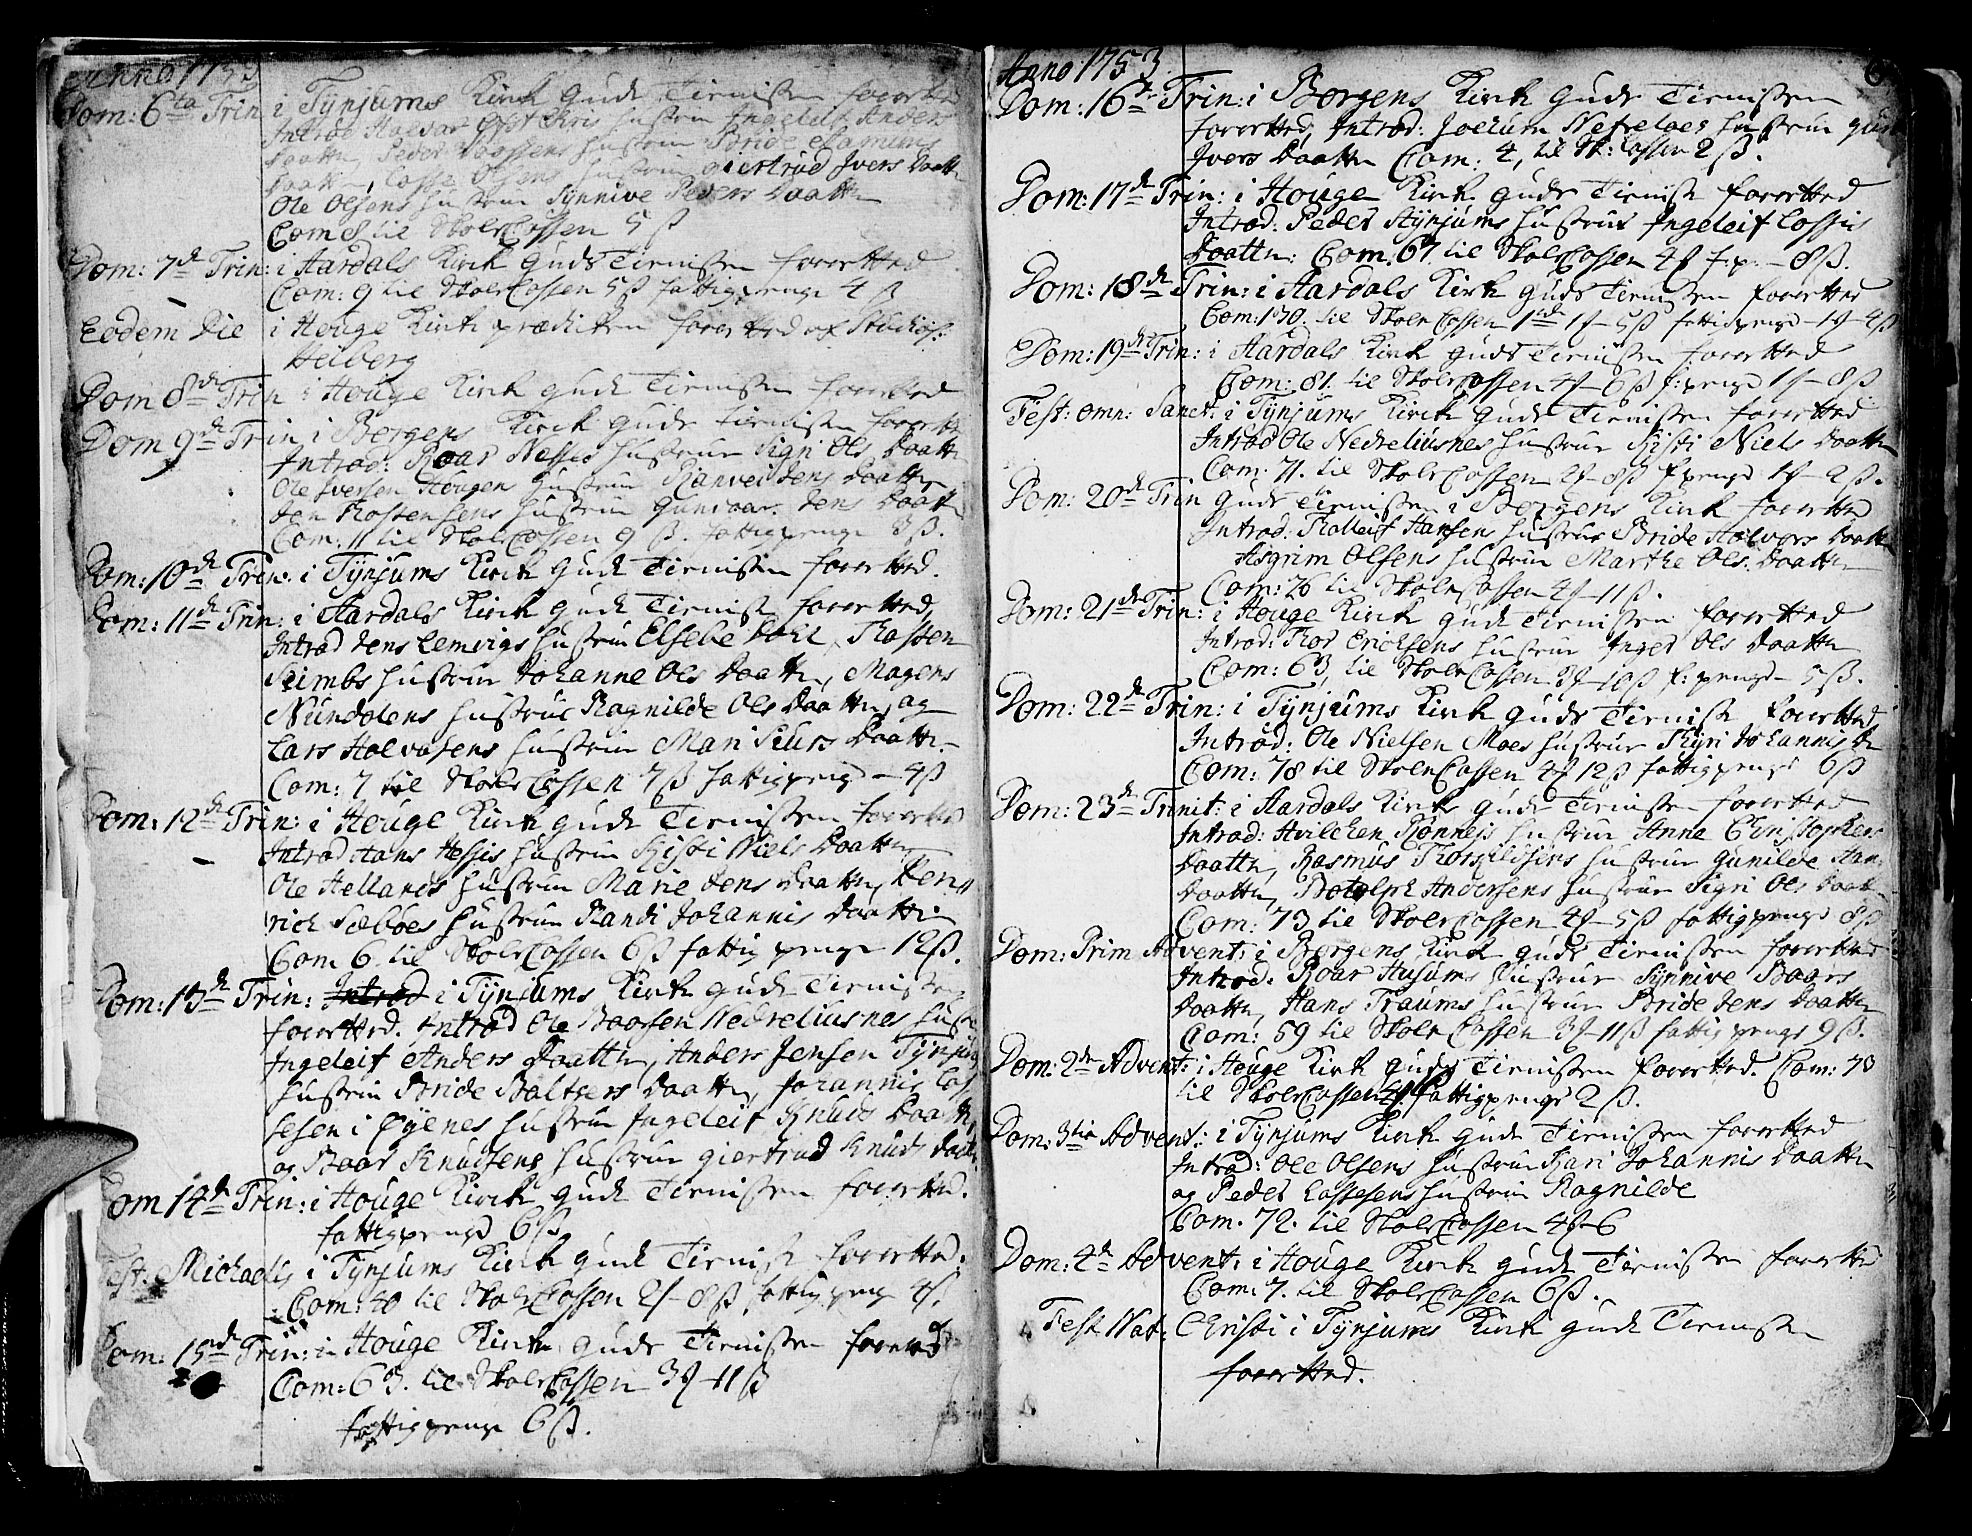 Anno 1753
Dom: 6ta Trin i Tynjums Kirck Guds Tienisten forretted
Introd Halvor hustrue Ingeleif Anders
Daatter, Peder hustrue Bride
Daatter, Lasse Olsens hustrue Giertrud Ivers Daatter
Ole Olsens hustrue Synnive Peders Daatter
Com: til Skole Cassen 5 ß
Dom: 7de Trin: i Aardals Kirck Guds Tienisten forretted
Com: 9 til Skole Cassen 5 ß fattigpenge 4 ß
Eodem Die i Houge Kirck prædicken forretted af Studios:
Heiberg
Dom 8de Trin i Houge Kirck Guds Tienisten forretted
Dom 9de Trin i Borgens Kirck Guds Tienisten forretted
Introd: Roar Nesses hustrue Sigri Ols Daatter
Ole Iversen Hougen hustrue Ranvei Jens Daatter
hustrue Gunvaar Jens Daatter
Com: 11 til Skole Cassen 9 ß. fattigpenge 8 ß.
Dom: 10de Trin: i Tynjums Kirck Guds Tienisten forretted.
Dom: 11de Trin: i Aardals Kirck Guds Tieniste forretted,
Introd Jens Lemvigs hustrue Elsebe Dahl, Thosten
Seimbs hustrue Johanne Ols Daatter, Magens
Nundalens hustrue Ragnilde Ols Daatter, og
Lars Halvorsens hustrue Mari Siurs Daatter
Com: 7 til Skole Cassen 7 ß fattigpenge - 4 ß
Dom: 12de Trin: i Houge Kirck Guds Tienisten forretted
Introd Hans Hessis hustrue Kisti Niels Daatter
Ole Hellands hustrue Marie Jens Daatter, Hen
rich Selboes hustrue Randi Johannis Daatter
Com 6. til Skole Cassen 6 ß fattig penge 12 ß.
Dom: 13de Trin: Introd i Tynjums Kirck Guds Tienisten
forretted. Introd Ole Boersen Nedreliusnes hustrue
Ingeleif Anders Daatter, Anders Jensen Tynjum
hustrue Bride Baltzers Daatter, Johannis Las
sesen i Øyenes hustrue Ingeleif Knuds Daatter,
og Boar Knudsens hustrue Giertrud Knuds Daatter
Dom 14de Trin: i Houge Kirck Guds Tienisten forretted.
fattigpenge 6 ß
Fest. Michaelis i Tynjums Kirck Guds Tieniste forretted.
Com: 40 til Skole Cassen 2 - 8 ß fattigpenge 4 ß.
Dom: 15de Trin: i Houge Kirck Guds Tienisten forretted
Com: 63. til Skole Cassen 3 - 11 ß
fattigpenge 6 ß.
Anno 1753
Dom: 16de Trin: i Borgens Kirck Guds Tienisten
forretted, Introd: Jochum Nefreloes hustrue
Ivers Daatter Com: 4, til Sk: Cassen 2 ß.
Dom: 17de Trin: i Houge Kirck Guds Tieniste forretted
Introd: Peder Stynjums hustrue Ingeleif Lassis
Daatter: Com. 67 til Skole Cassen 4 f:p. - 8 ß.
Dom: 18de Trin: i Aardals Kirck Guds Tienisten forretted
Com: 130. til Skole Cassen 1 - 5 ß fattigpenge - 1 - 4 ß
Dom: 19de Trin: i Aardals Kirck Guds Tienisten forretted
Com: 81. til Skole Cassen 4 - 6 ß f:penge 1 - 8 ß
Fest: omn: Sanct: i Tynjums Kirck Guds Tienisten forretted
Introd Ole Nedreliusnes hustrue Kisti Niels Daatter
Com. 71. til Skole Cassen 2 - 8 ß f penge 1 - 2 ß.
Dom: 20de Trin Guds Tienisten i Borgens Kirck forretted
Introd: Tholleif Hansens hustrue Bride Halvors Daatter
Asgrim Olsens hustrue Marthe Ols: Daatter
Com: 26 til Skole Cassen 4 - 11 ß.
Dom: 21de Trin: i Houge Kirck Guds Tienisten forretted
Introd: Thor Erichsens hustrue Inger Ols Daatter
Com: 63, til Skole Cassen 3 - 10 ß f: penge - 5 ß.
Dom: 22de Trin: i Tynjums Kirck Guds Tieniste forretted,
Introd: Ole Nielsen Moes hustrue Thyri Johannis D
Com: 78 til Skole Cassen 4 12 ß fattigpenge 6 ß
Dom: 23de Trinit: i Aardals Kirck Guds Tienisten forretted
Introd: hustrue Anna Christophers
Daatter, Rasmus hustrue Gunilde
Daatter, Botolph Andersens hustrue Sigri Ols Daatter
Com: 73 til Skole Cassen 4 - 5 ß fattigpenge 8 ß
Dom: Prim Advent: i Borgens Kirck Guds Tienisten forretted
Introd. Roar Husums hustrue Synnive Boars
Daatter, Hans Traums hustrue Bride Jens Daatter
Com: 59 til Skole Cassen 3 - 11 ß fattig penge 9 ß.
Dom: 2de Advent: i Houge Kirck Guds Tienisten forretted. Com: 73
til Skole Cassen 4 fattigpenge 2 ß.
Dom: 3tia Advent: i Tynjums Kirck Guds Tienisten forretted
Introd: Ole Olsens hustrue Kari Johannis Daatter
og Peder Lassesens hustrue Ragnilde
Com. 72. til Skole Cassen 4 - 6
Dom: 4de Advent: i Houge Kirck Guds Tienisten forretted
Com: 7. til Skole Cassen 6 ß.
Fest Nat: Christi i Tynjums Kirck Guds Tienisten
forretted.